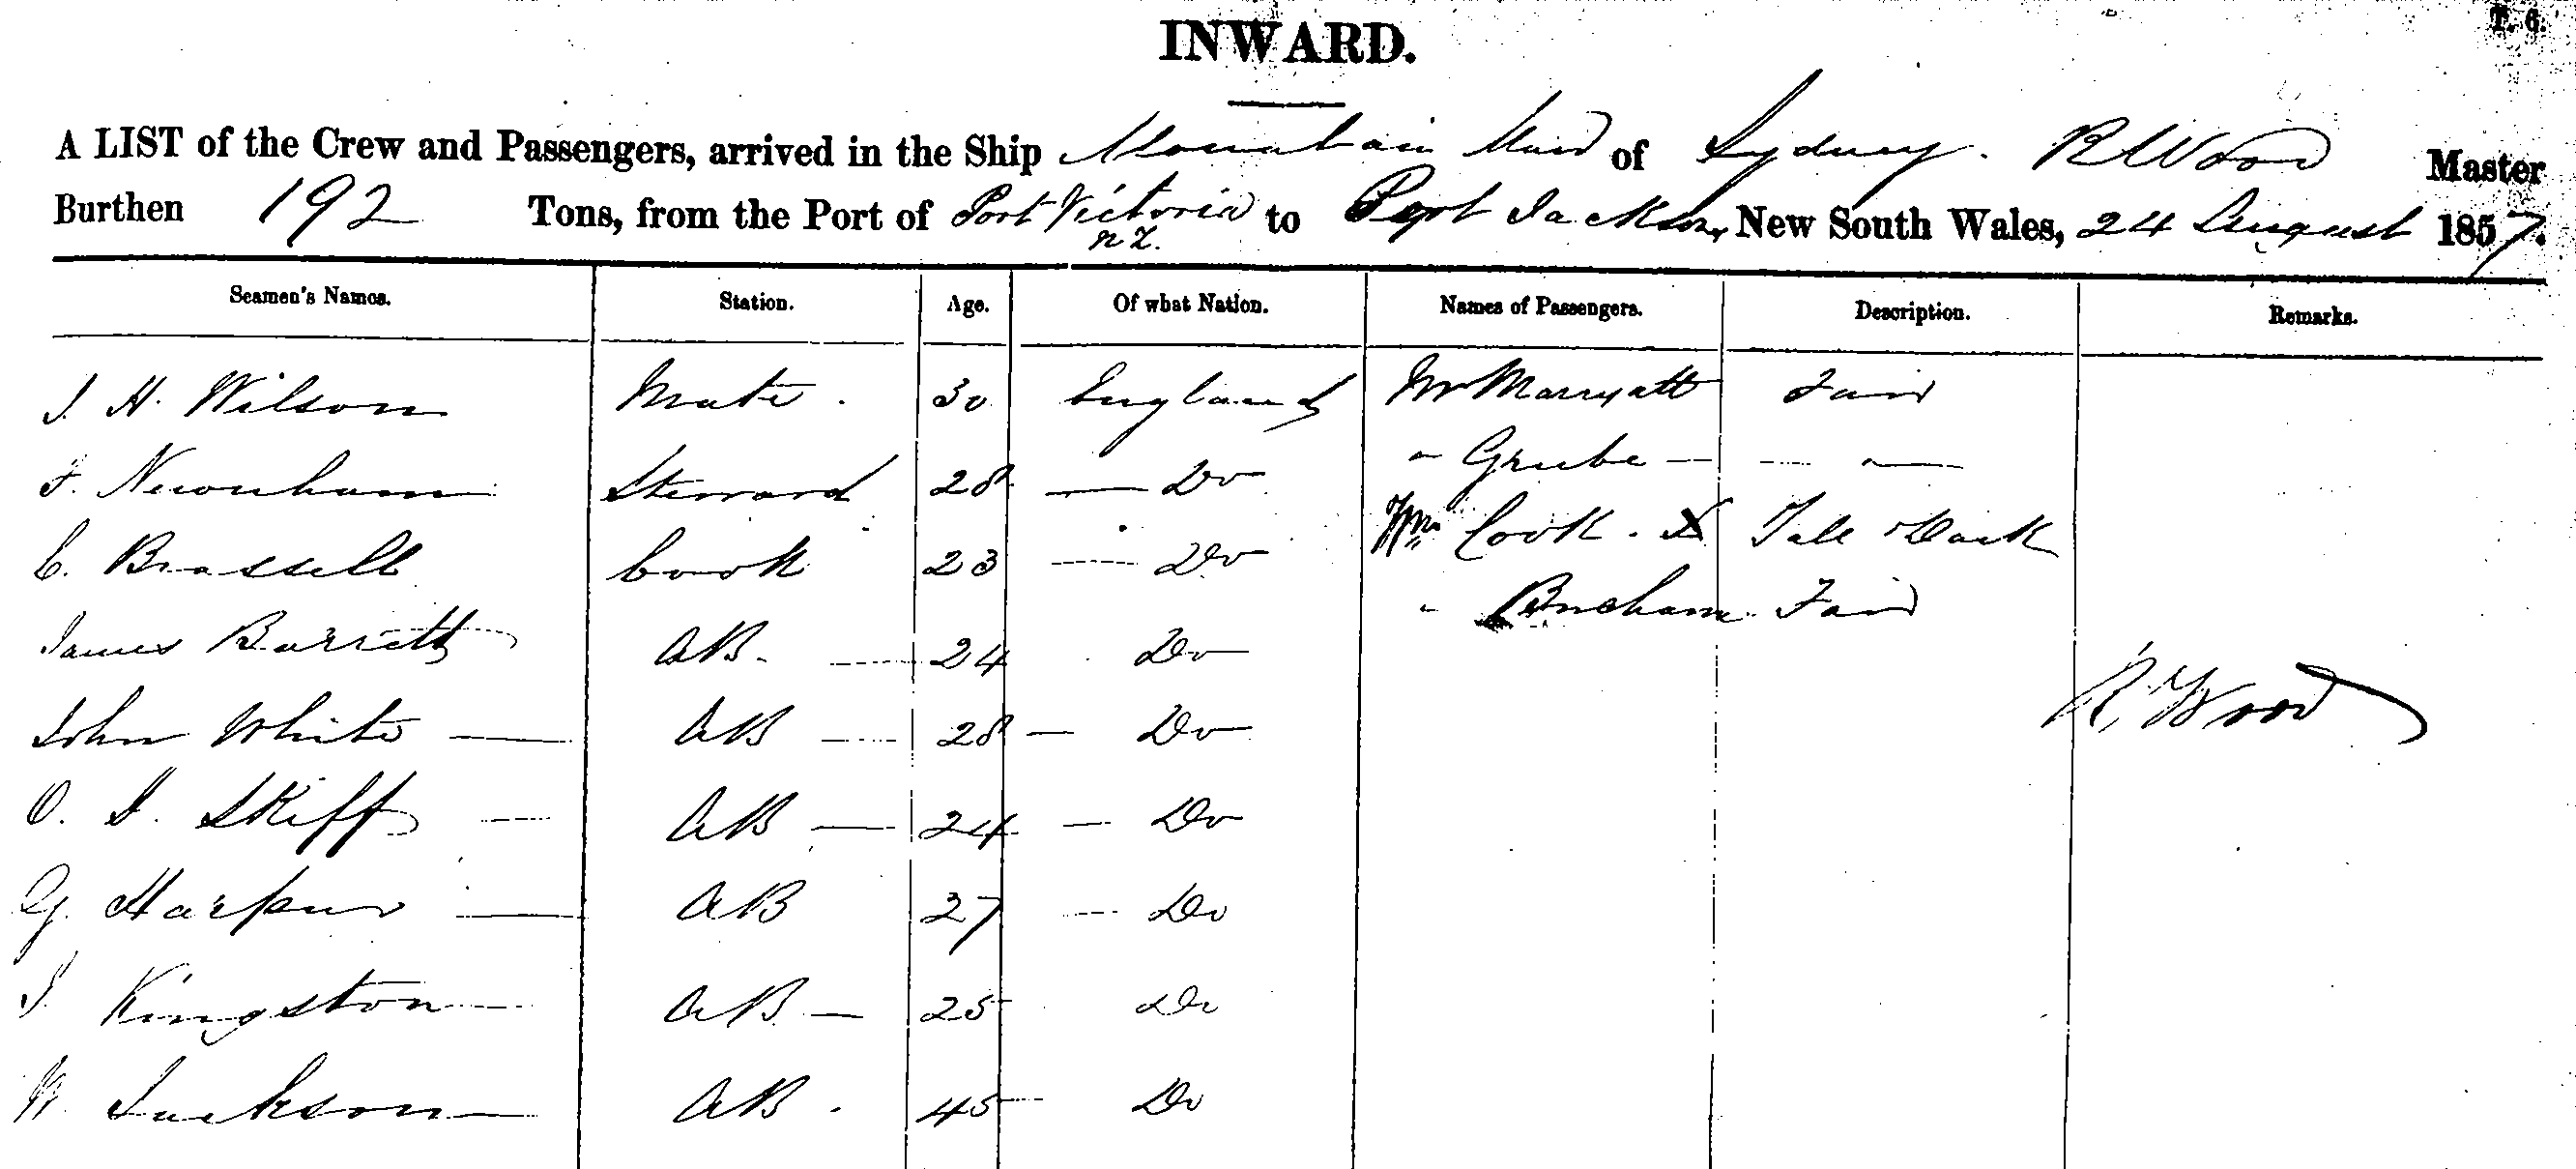 T. 6.
INWARD.
A LIST of the Crew and Passengers, arrived in the Ship Mountain Maid of Sydney. R Wood Master
Burthen 192 Tons, from the Port of Port Victoria to Port Jackson, New South Wales, 24 August 1857.
N Z.
Seamen's Names. Station. Age. Of what Nation. Names of Passengers. Description. Remarks.
J. H. Wilson Mate. 30 England Mr Marryatt Fair
F. Newnham Steward 28 — Do " Grube — — —
C. Brassell Cook 23 — Do Cook. X Tall Dark
James Barrett AB. — 24 Do " Fair
John White — AB — 28 — Do R. Wood
O. J. Skiff — AB — 24 — Do
G. Harpur — AB 27 — Do
J. Kingston — AB — 25 Do
W. Jackson — AB. 45 — Do